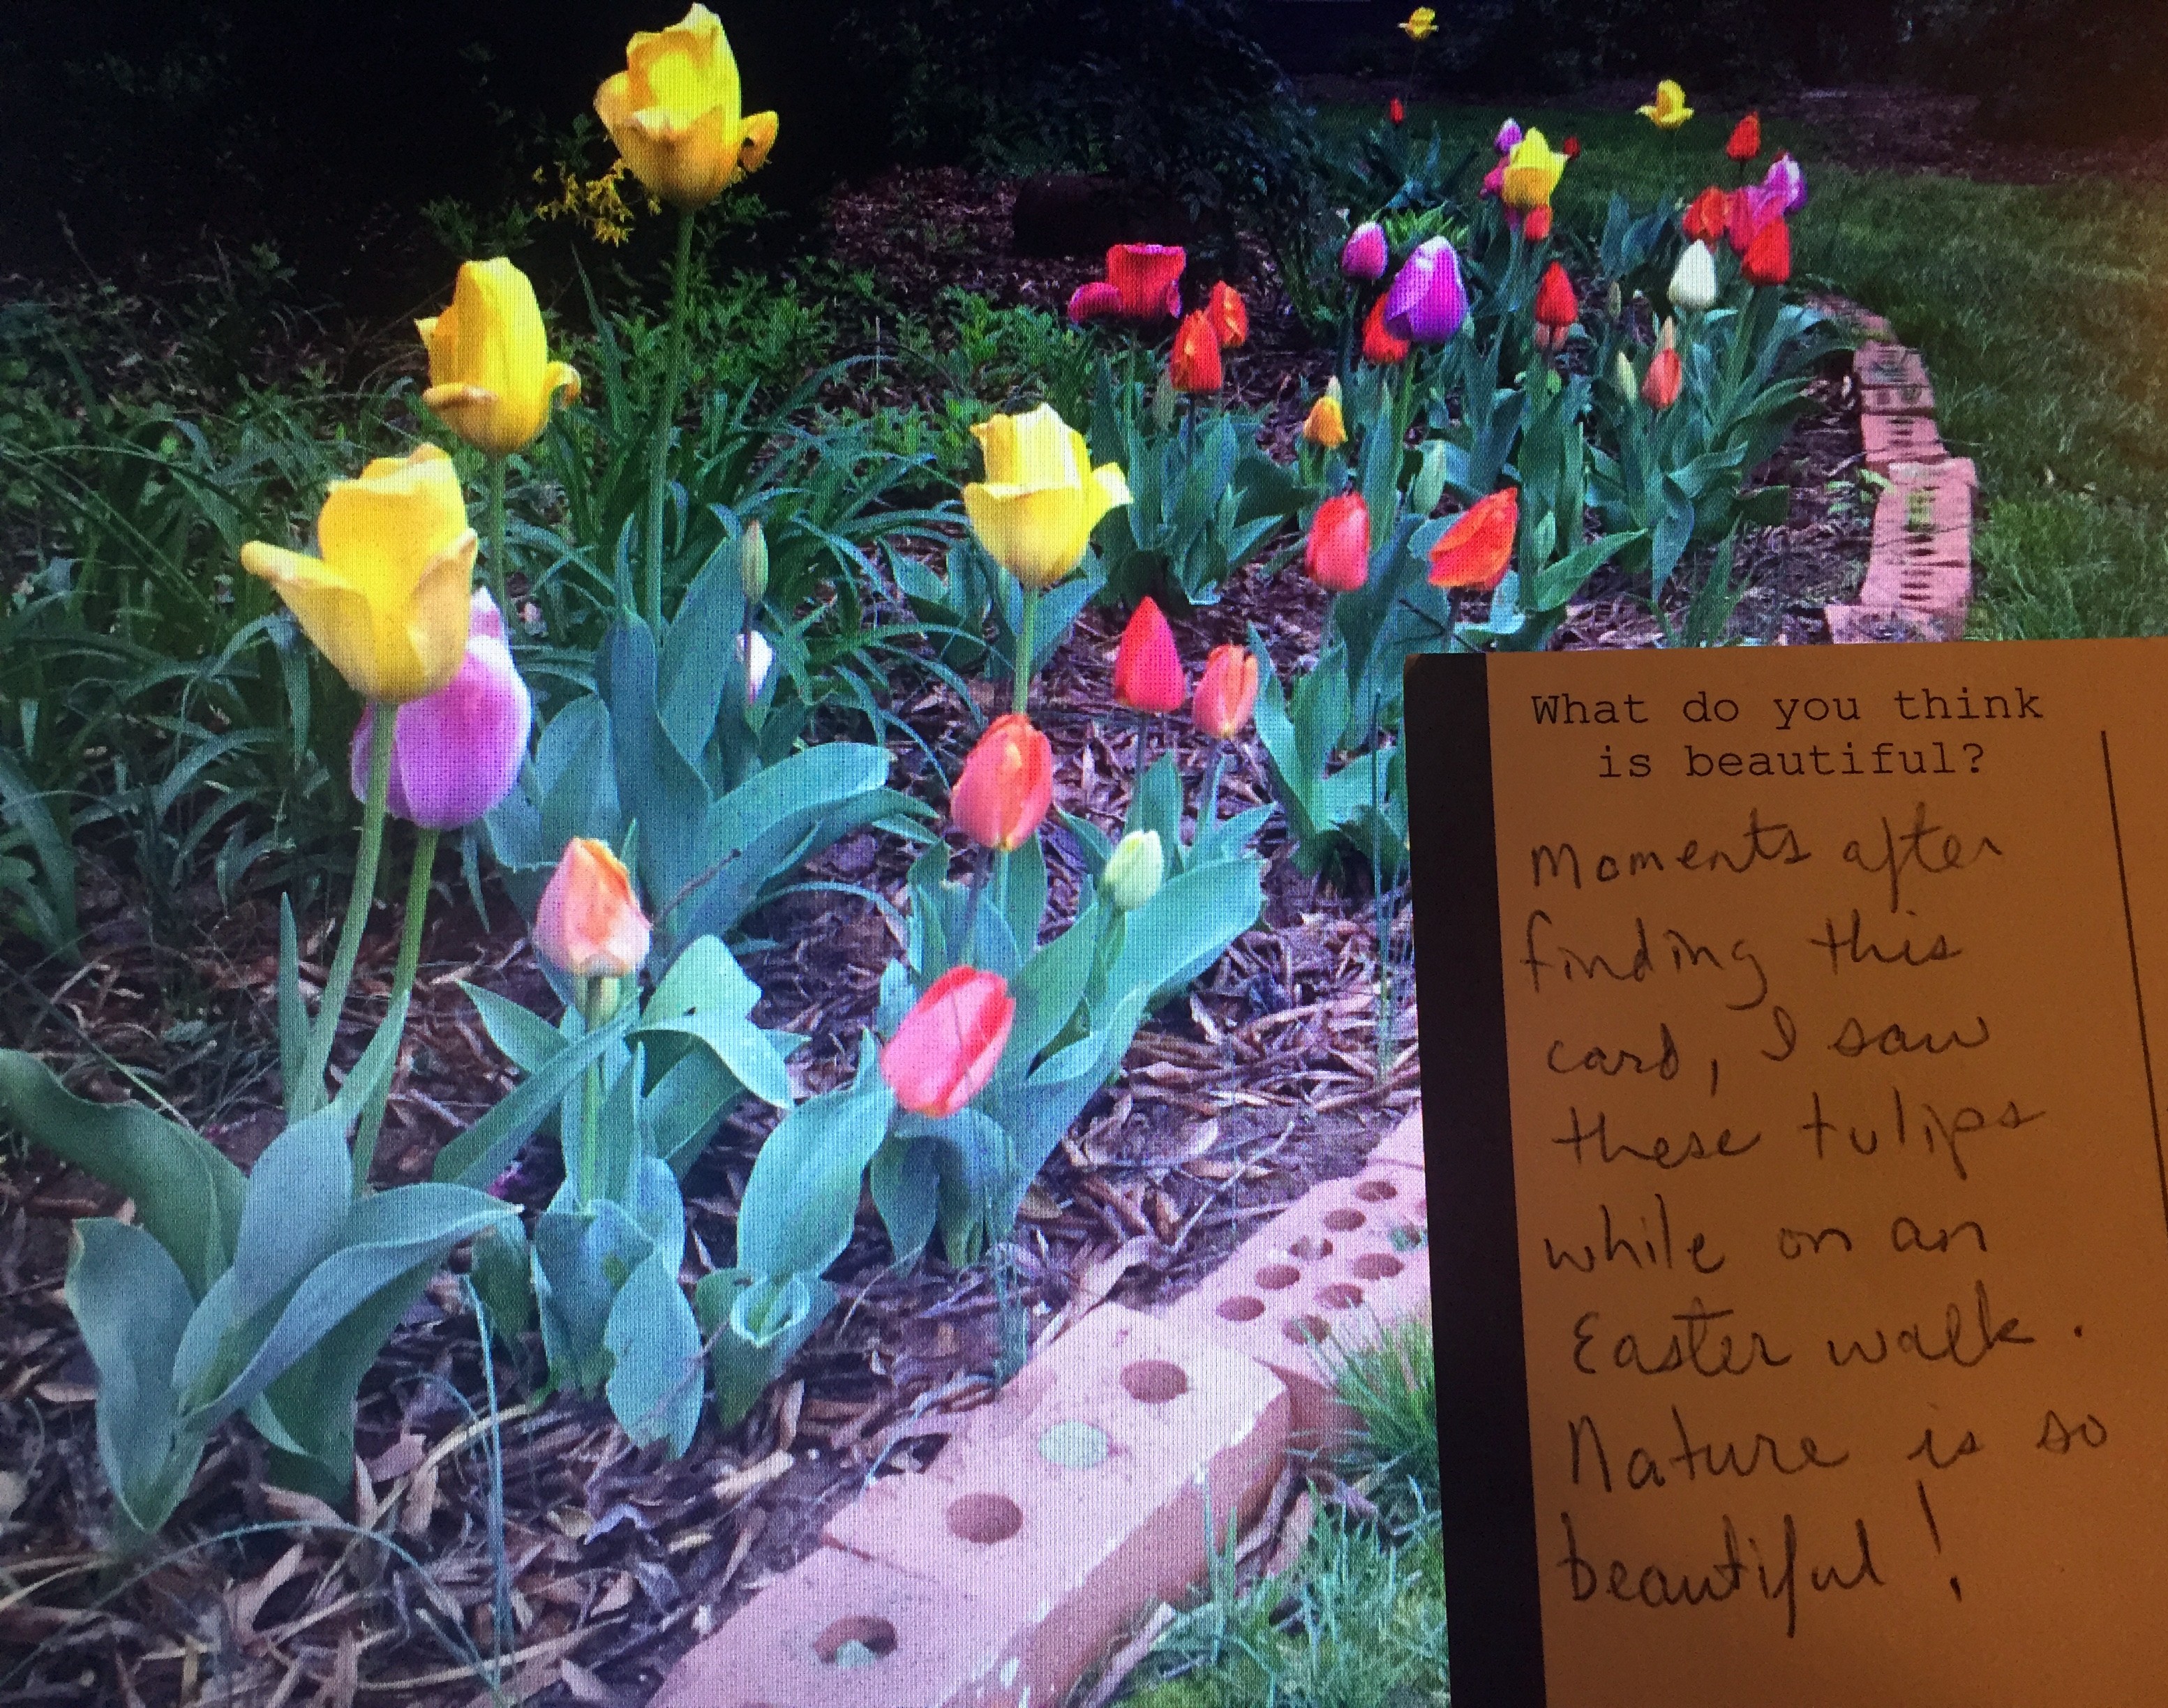 What do you think
is beautiful?
Moments after
finding this
card, I saw
these tulips
while on an
Easter walk.
Nature is so
beautiful!